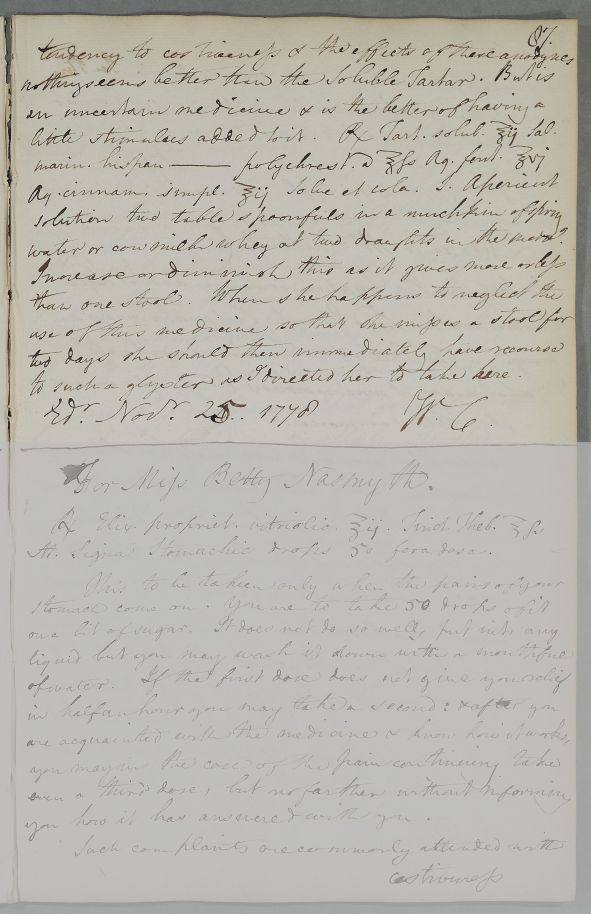 87.
tendency to costiveness & the effects of these anodynes
nothing seems better than the Soluble Tartar. But is
an uncertain medicine & is the better of having a
little stimulus added to it. ℞ Tart. solub. ℥ij Sal.
marin. hispan —— polychrest. a ℥ſs Aq. font. ℥vj
Aq. cinnam. simpl. ℥ij Solve et cola. S. Aperient
solution two table spoonfuls in a mutchkin of spring
water or cow milk whey at two draughts in the morng.
Increase or diminish this as it gives more or leſs
than one stool. When she happens to neglect the
use of this medicine so that she miſses a stool for
two days she should then immediately have recourse
to such a glyster as I directed her to take here.
Edr. Novr. 25. 1778 W. C.
For Miſs Betty Nasmyth.
℞ Elix. propriet. vitriolic. ℥ij. Tinct. Theb. ℥ſs
M. Signa Stomachic drops 50 for a dose.
This to be taken only when the pains of your
stomach come on. You are to take 50 drops of it
on a bit of sugar. It does not do so well, put into any
liquid but you may wash it down with a mouthful
of water. If the first dose does not give you relief
in half an hour you may take a second: & after you
are acquainted with the medicine & know how it works,
you may in the case of the pain continuing take
even a third dose, but no farther without informing
you how it has answered with you.
Such complaints are commonly attended with
costiveneſs